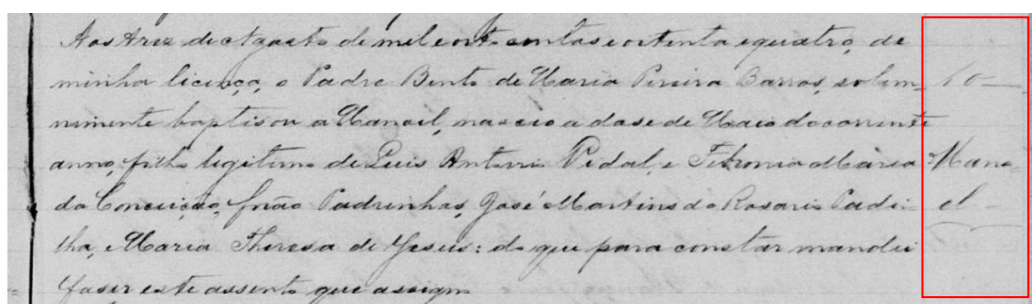 Aos treze de Agosto de mil oito centos e oitenta e quatro, de
minha licença, o Padre Bento de Maria Pereira Barros, solem-
nimente baptisou a Manoel, nascio a dose de Maio do corrente
anno, filho legitimo de Luis Antonio Pedal, e Maria
da Conceição, forão Padrinhos, José Martins do Rosario Padi-
lha, e Maria Thereza de Jesus: do que para constar mandei
faser este assento que assigno
10
Mano-
el